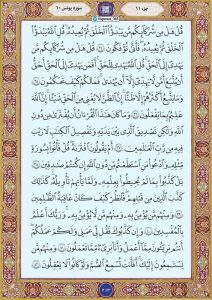 جزء ۱۱
سورة يونس ۱۰
قُلْ هَلْ مِن شُرَكَآئِكُم مَّن يَبْدَؤُا۟ ٱلْخَلْقَ ثُمَّ يُعِيدُهُۥ قُلِ ٱللَّهُ يَبْدَؤُا۟
ٱلْخَلْقَ ثُمَّ يُعِيدُهُۥ فَأَنَّىٰ تُؤْفَكُونَ ٣٤ قُلْ هَلْ مِن شُرَكَآئِكُم مَّن
يَهْدِىٓ إِلَى ٱلْحَقِّ قُلِ ٱللَّهُ يَهْدِى لِلْحَقِّ أَفَمَن يَهْدِىٓ إِلَى ٱلْحَقِّ أَحَقُّ
أَن يُتَّبَعَ أَمَّن لَّا يَهِدِّىٓ إِلَّآ أَن يُهْدَىٰ فَمَا لَكُمْ كَيْفَ تَحْكُمُونَ ٣٥
وَمَا يَتَّبِعُ أَكْثَرُهُمْ إِلَّا ظَنًّا إِنَّ ٱلظَّنَّ لَا يُغْنِى مِنَ ٱلْحَقِّ شَيْـًٔا إِنَّ ٱللَّهَ
عَلِيمٌۢ بِمَا يَفْعَلُونَ ٣٦ وَمَا كَانَ هَٰذَا ٱلْقُرْءَانُ أَن يُفْتَرَىٰ مِن دُونِ
ٱللَّهِ وَلَٰكِن تَصْدِيقَ ٱلَّذِى بَيْنَ يَدَيْهِ وَتَفْصِيلَ ٱلْكِتَٰبِ لَا رَيْبَ
فِيهِ مِن رَّبِّ ٱلْعَٰلَمِينَ ٣٧ أَمْ يَقُولُونَ ٱفْتَرَىٰهُ قُلْ فَأْتُوا۟ بِسُورَةٍ
مِّثْلِهِۦ وَٱدْعُوا۟ مَنِ ٱسْتَطَعْتُم مِّن دُونِ ٱللَّهِ إِن كُنتُمْ صَٰدِقِينَ ٣٨
بَلْ كَذَّبُوا۟ بِمَا لَمْ يُحِيطُوا۟ بِعِلْمِهِۦ وَلَمَّا يَأْتِهِمْ تَأْوِيلُهُۥ كَذَٰلِكَ
كَذَّبَ ٱلَّذِينَ مِن قَبْلِهِمْ فَٱنظُرْ كَيْفَ كَانَ عَٰقِبَةُ ٱلظَّٰلِمِينَ
٣٩ وَمِنْهُم مَّن يُؤْمِنُ بِهِۦ وَمِنْهُم مَّن لَّا يُؤْمِنُ بِهِۦ وَرَبُّكَ أَعْلَمُ
بِٱلْمُفْسِدِينَ ٤٠ وَإِن كَذَّبُوكَ فَقُل لِّى عَمَلِى وَلَكُمْ عَمَلُكُمْ
أَنتُم بَرِيٓـُٔونَ مِمَّآ أَعْمَلُ وَأَنَا۠ بَرِىٓءٌ مِّمَّا تَعْمَلُونَ ٤١ وَمِنْهُم مَّن
يَسْتَمِعُونَ إِلَيْكَ أَفَأَنتَ تُسْمِعُ ٱلصُّمَّ وَلَوْ كَانُوا۟ لَا يَعْقِلُونَ ٤٢